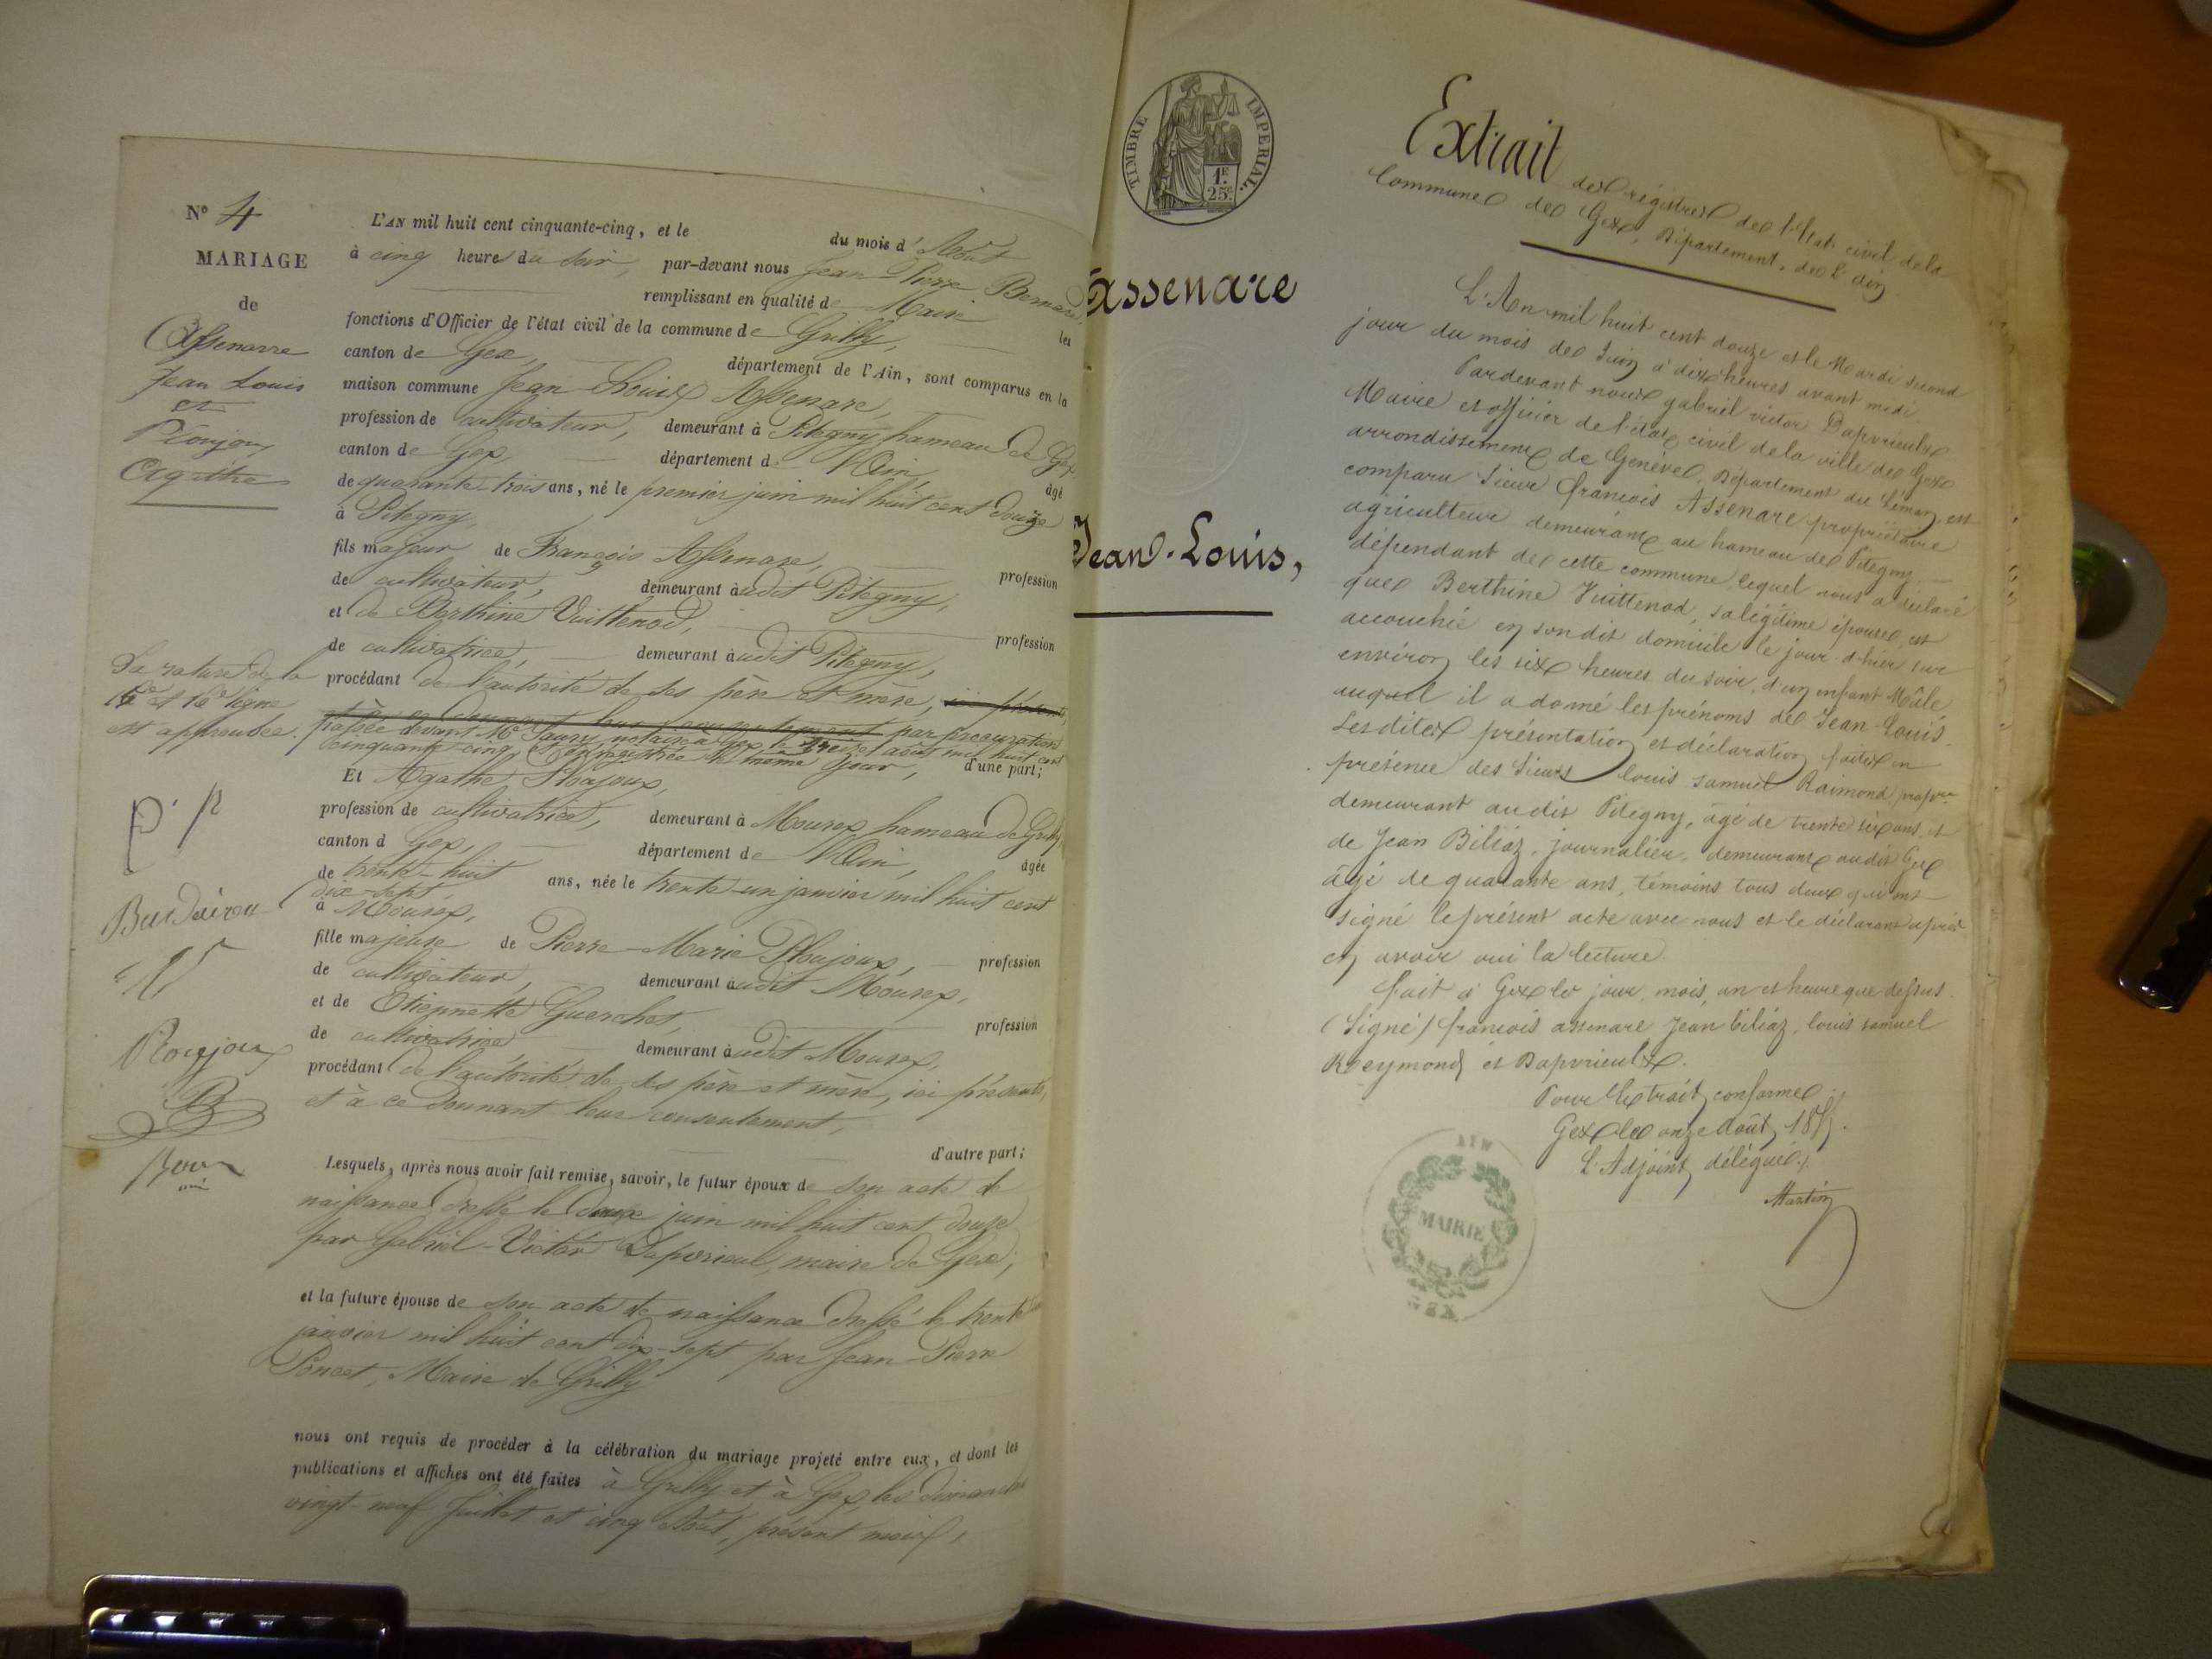 N° 4
MARIAGE
de
Assenarre
Jean Louis
et
Ploujoux
Agathe
L'AN mil huit cent cinquante-cinq, et le du mois d'Août
à cinq heures du soir, par-devant nous Jean Pierre Bernard,
remplissant en qualité de Maire les
fonctions d'Officier de l'état civil de la commune de Grilly,
canton de Gex, département de l'Ain, sont comparus en la
maison commune Jean Louis Assenare,
profession de cultivateur, demeurant à Pitegny hameau de Gex
canton de Gex, département de l'Ain, âgé
de quarante trois ans, né le premier juin mil huit cent douze
à Pitegny,
fils majeur de François Assenare, profession
de cultivateur, demeurant audit Pitegny,
et de Berthine Vuittenod, profession
de cultivatrice, demeurant audit Pitegny,
procédant de l'autorité de ses père et mère, ici présents
et à ce donnant leur consentement par procuration
passée devant Me notaire à Gex le treize août mil huit cent
cinquante-cinq, et enregistrée le même jour, d'une part;
La rature de la
15e et 16e ligne
est approuvée.
Et Agathe Ploujoux,
profession de cultivatrice, demeurant à Mourex hameau de Grilly
canton d Gex, département de l'Ain, âgée
de trente-huit ans, née le trente-un janvier mil huit cent
dix-sept,
à Mourex,
fille majeure de Pierre-Marie Ploujoux, profession
de cultivateur, demeurant audit Mourex,
et de Etiennette Guerchet, profession
de cultivatrice demeurant audit Mourex,
procédant de l'autorité de ses père et mère, ici présents,
et à ce donnant leur consentement,
d'autre part;
Lesquels, après nous avoir fait remise, savoir, le futur époux de son acte de
naissance dressé le deux juin mil huit cent douze
par Gabriel-Victor Dapvrieul, maire de Gex;
et la future épouse de son acte de naissance dressé le trente
janvier mil huit cent dix-sept par Jean-Pierre
Poncet, Maire de Grilly
nous ont requis de procéder à la célébration du mariage projeté entre eux, et dont les
publications et affiches ont été faites à Grilly et à Gex, les dimanches
vingt-neuf Juillet et cinq Août, présent mois,
TIMBRE IMPERIAL.
1F
25c
Assenare
Jean-Louis,
Extrait des régistres de l'Etat civil de la
Commune de Gex, Département de l'Ain
L'An mil huit cent douze et le Mardi second
jour du mois de Juin à dix heures avant midi.
Pardevant nous gabriel victor Dapvrieulx
Maire et officier de l'état civil de la ville de Gex
arrondissement de Genève, Département du Léman, est
comparu Sieur francois Assenare propriétaire
agriculteur demeurant au hameau de Pitegny
dépendant de cette commune lequel nous a déclaré
que Berthine Vuittenod, sa légitime épouse, est
accouchée en son dit domicile le jour d'hier sur
environ les six heures du soir, d'un enfant Mâle
auquel il a donné les prénoms de Jean-Louis.
Les dites présentation et déclaration faites en
présence des Sieurs louis samuel Raimond, propre
demeurant au dit Pitegny, âgé de trente six ans, et
de Jean Biliaz, journalier, demeurant audit Gex
âgé de quarante ans, témoins tous deux qui ont
signé le présent acte avec nous et le déclarant après
en avoir oui la lecture.
fait à Gex les jour, mois, an et heure que dessus.
(Signé) francois assenare Jean biliaz, louis samuel
Reymond et Dapvrieulx.
Pour Extrait conforme
Gex le onze Août 1855.
L'Adjoint délégué.
Martin
AIN
MAIRIE
GEX